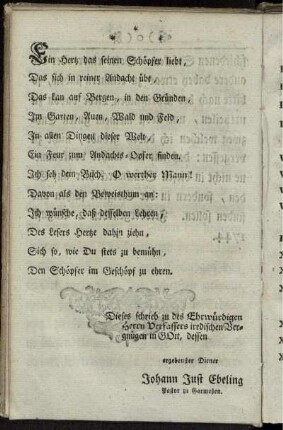 Ein Hertz das seinen Schöpfer liebt,
Das sich in reiner Andacht übt,
Das kan auf Bergen, in den Gründen,
Im Garten, Auen, Wald und Feld,
In allen Dingen dieser Welt,
Ein Feur zum Andachts-Opfer finden.
Ich seh dein Buch, O werther Mann!
Davon als den Beweisthum an:
Ich wünsche, daß desselben Lehren,
Des Lesers Hertze dahin ziehn,
Sich so, wie Du stets zu bemühn,
Den Schöpfer im Geschöpf zu ehren.
Dieses schrieb zu des Ehrwürdigen
Herrn Verfassers irrdischen Ver-
gnügen in GOtt, dessen
ergebenster Diener
Johann Just Ebeling
Pastor zu Garmissen.